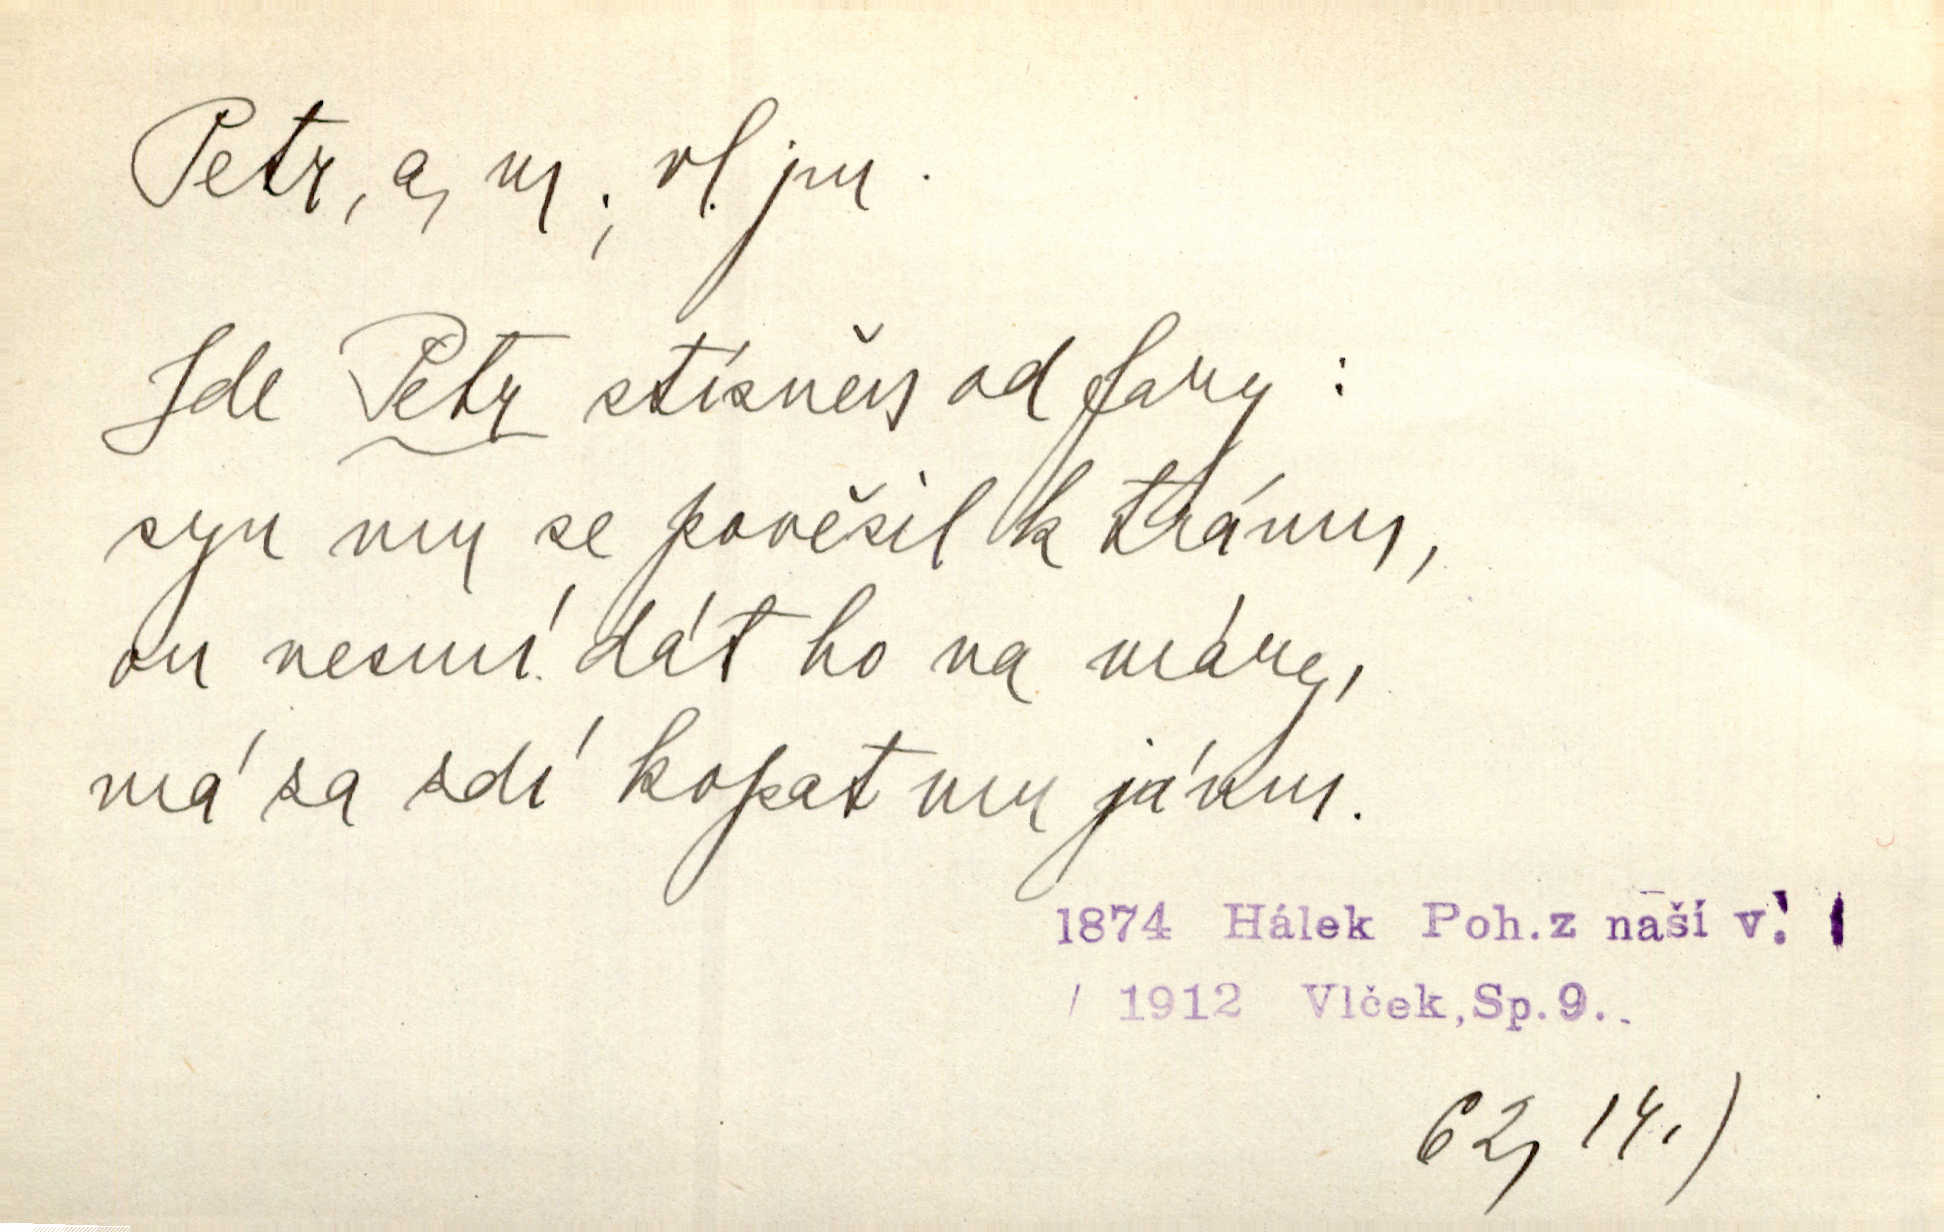 Petr, a, m.; vl. jm.
Jde Petr stísněn od fary:
syn mu se pověsil k trámu,
on nesmí dát ho na máry,
má za zdí kopat mu jámu.
1874 Hálek Poh.z naší v.
/ 1912 Vlček,Sp.9..
62, 14.)